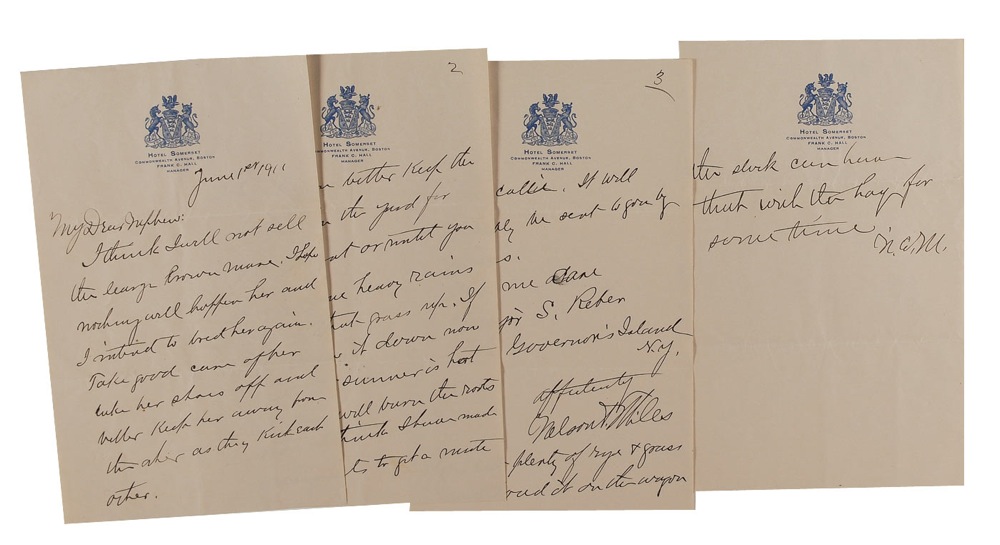 Hotel Somerset
Commonwealth Avenue, Boston
Frank C. Hall
Manager
June 1st 1911
My Dear Nephew:
I think I will not sell
the large brown mare. I hope
nothing will happen her and
I intend to breed her again.
Take good care of her
take her shoes off and
better keep her away from
the other as they kick each
other.
2
Hotel Somerset
ommonwealth Avenue, Boston
Frank C. Hall
Manager
better keep the
in the yard for
or until you
heavy rains
grass up. If
it down now
summer is hot
will burn the roots
think I have made
to get a mate
3
Hotel Somerset
Commonwealth Avenue, Boston
Frank C. Hall
Manager
collie. It will
be sent to you by
me care
S. Reber
Governor's Island
N.Y.
Nelson A Miles
plenty of rye & grass
it on the wagon
Hotel Somerset
Commonwealth Avenue, Boston
Frank C. Hall
Manager
the stock can have
that with the hay for
some time
N.A.M.